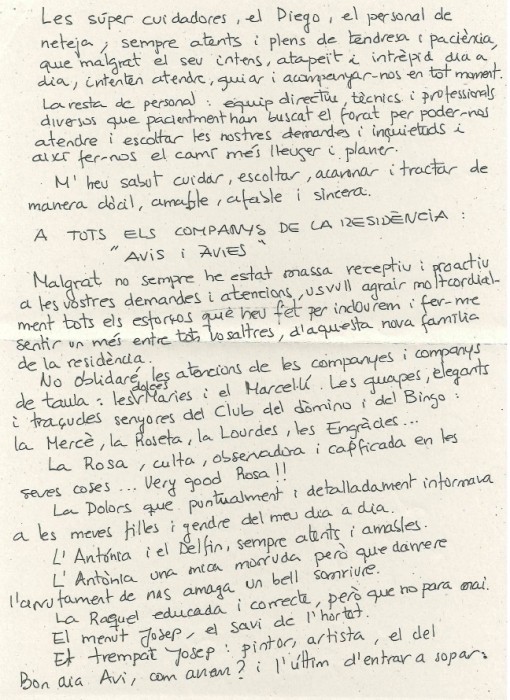 Les súper cuidadores, el Diego, el personal de
neteja, sempre atents i plens de tendresa i paciència,
que malgrat el seu intens, atapeit i intrèpid dia a
dia, intenten atendre, guiar i acompanyar-nos en tot moment.
La resta de personal: equip directiu, tècnics i professionals
diversos que pacientment han buscat el forat per poder-nos
atendre i escoltar les nostres demandes i inquietuds i
així fer-nos el camí més lleuger i planer.
M'heu sabut cuidar, escoltar, acaronar i tractar de
manera dòcil, amable, afable i sincera.
A TOTS ELS COMPANYS DE LA RESIDÈNCIA:
"AVIS i ÀVIES"
Malgrat no sempre he estat massa receptiu i proactiu
a les vostres demandes i atencions, us vull agrair molt cordial-
ment tots els esforços que heu fet per incloure'm i fer-me
sentir un més entre tots vosaltres, d'aquesta nova família
de la residència.
No oblidaré les atencions de les companyes i companys
de taula: les dolces Maries i el Marcel·lí. Les guapes, elegants
i traçudes senyores del Club del dòmino i del Bingo:
la Mercè, la Roseta, la Lourdes, les Engràcies...
La Rosa, culta, observadora i capficada en les
seves coses... Very good Rosa!!
La Dolors que puntualment i detalladament informava
a les meves filles i gendre del meu dia a dia.
L'Antònia i el Delfín, sempre atents i amables.
L'Antònia una mica morruda però que darrere
l'arrufament de nas amaga un bell somriure.
La Raquel educada i correcte, però que no para mai.
El menut Josep, el savi de l'hortet.
El trempat Josep: pintor, artista, el del
Bon dia Avi, com anem? i l'últim d'entrar a sopar.